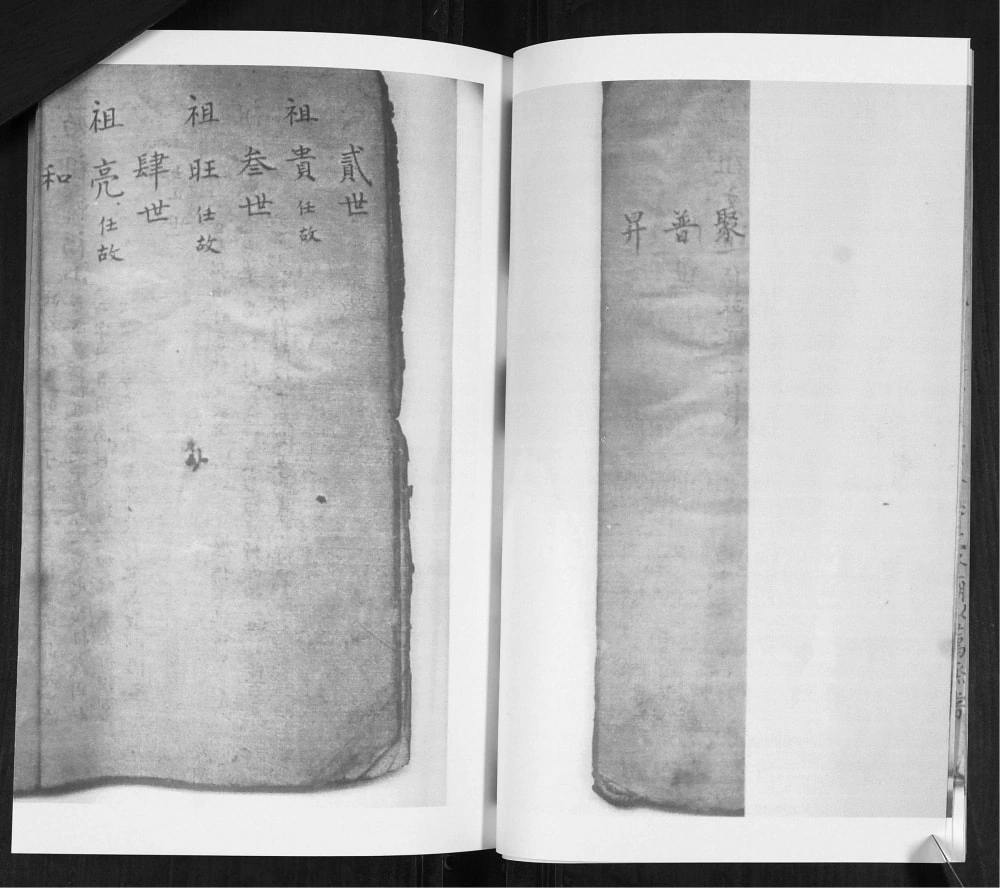 聚
普
昇
貳世
祖貴任故
叁世
祖旺任故
肆世
祖亮任故
和